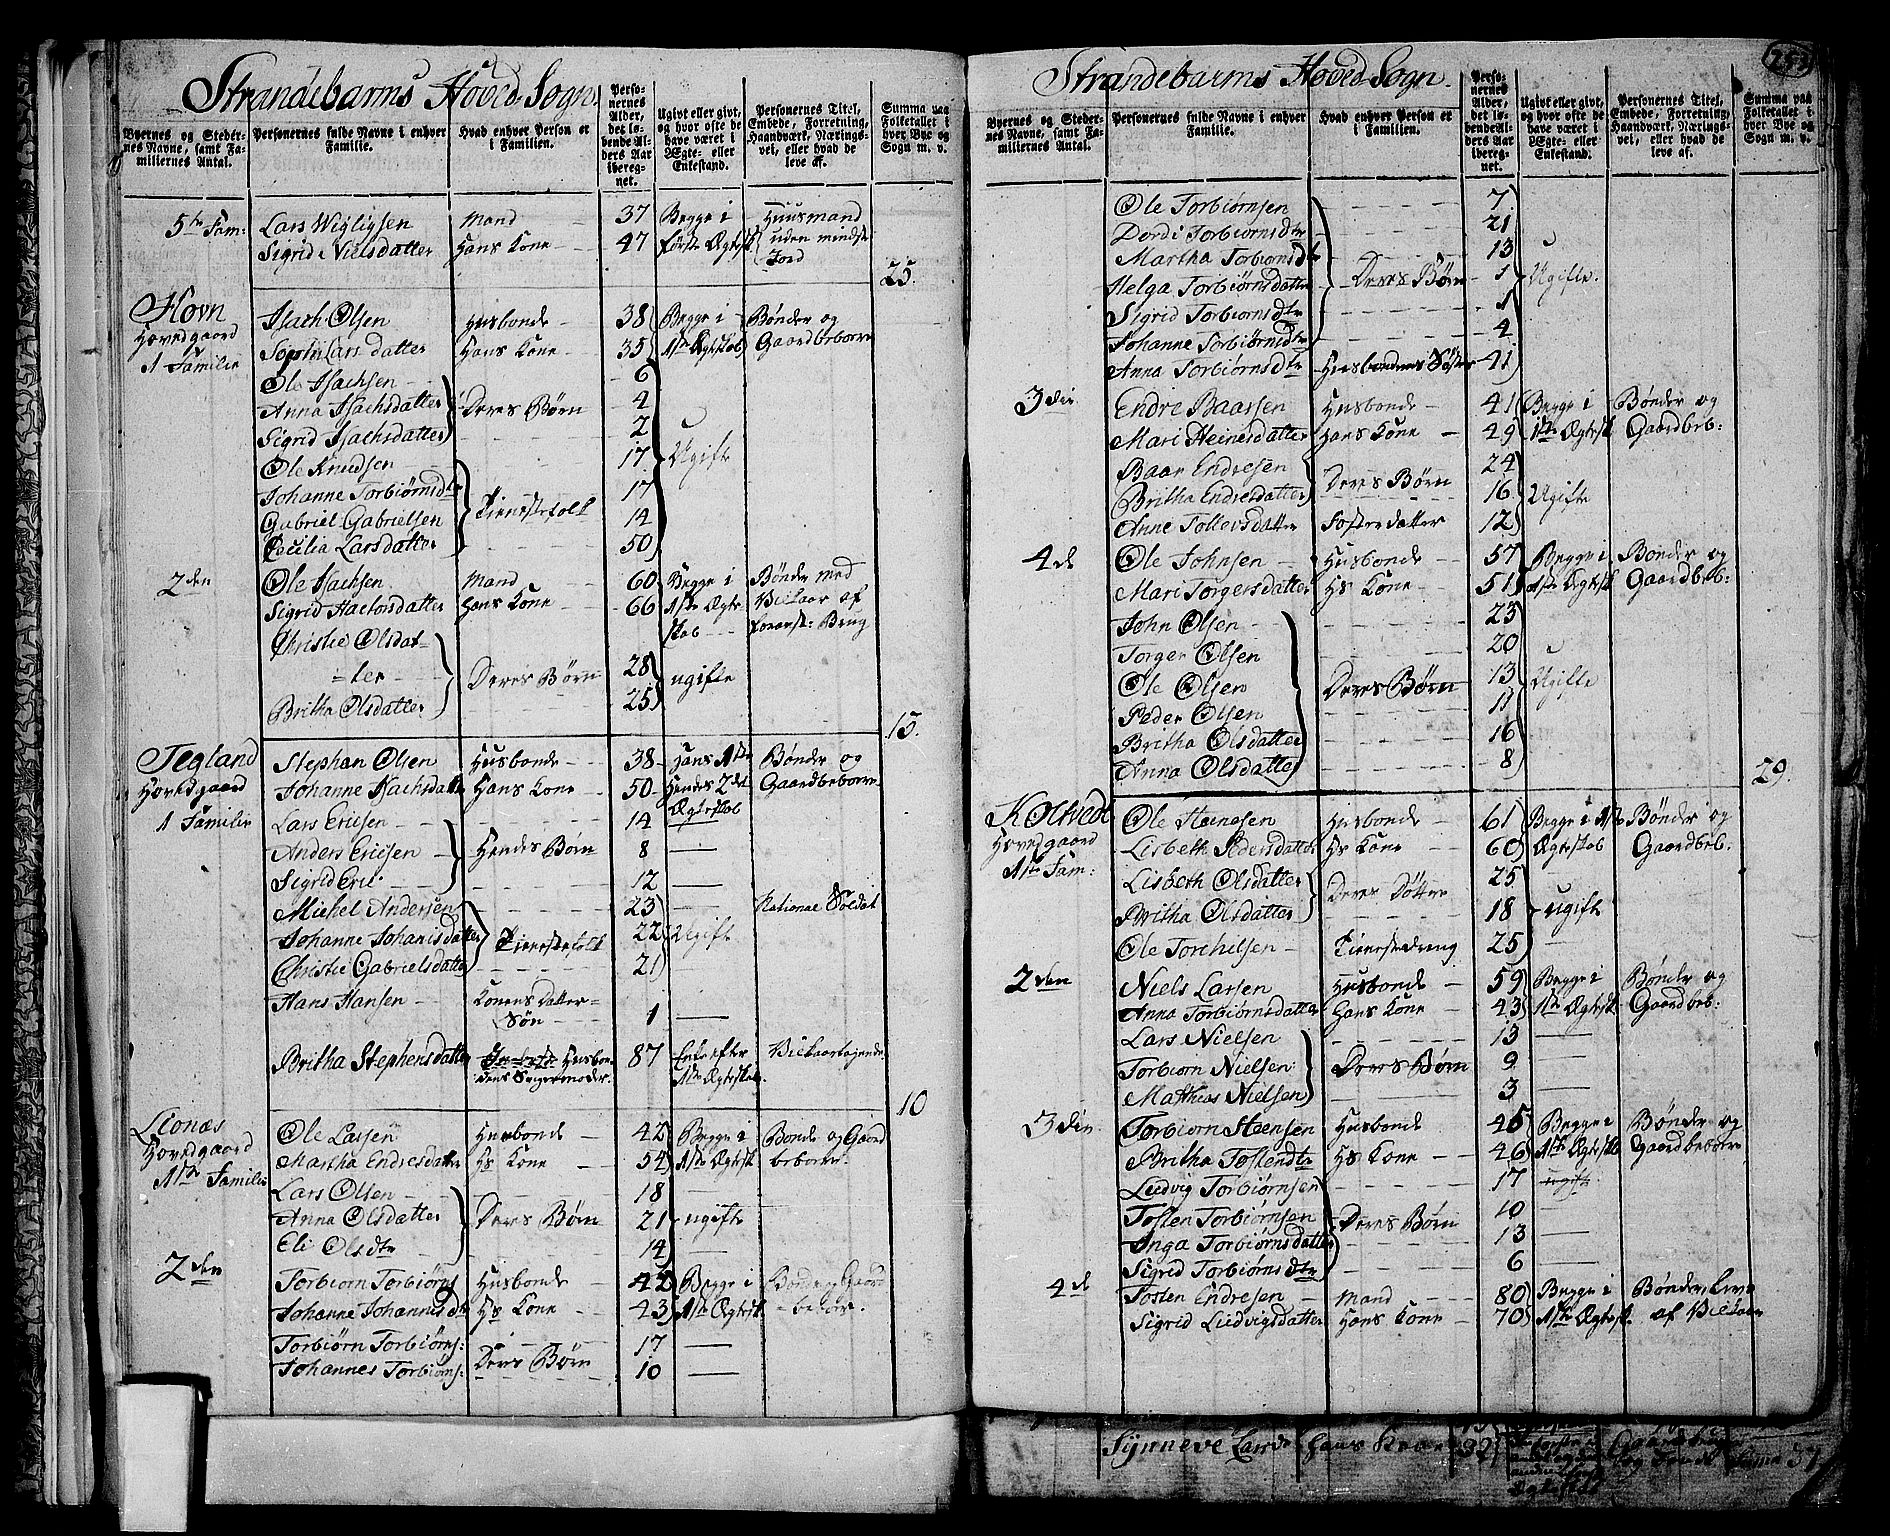 Strandebarms Hoved-Sogn.
Byernes og Steder-
nes Navne, samt Fa-
miliernes Antal.
Personernes fulde Navne i enhver
Familie.
Hvad enhver Person er
i Familien.
Perso-
nernes
Alder,
det lø-
bende Al-
ders Aar
iberegnet.
Ugivt eller givt,
og hvor ofte de
have været i
Ægte- eller
Enkestand.
Personernes Titel,
Embede, Forretning,
Haandværk, Nærings-
vei, eller hvad de
leve af.
Summa paa
Folketallet i
hver Bye og
Sogn m. v.
5te Fam: Lars Wigligsen Mand 37 Begge i Huusmand
Sigrid Nielsdatter Hans Kone 47 første Ægtesk. uden mindste
Jord
25.
Hovn
Hovedgaard
1 Familie
Isach Olsen Husbonde 38 Begge i Bønder og
Larsdatter Hans Kone 35 1ste Ægteskab Gaardbeboere
Ole Isachsen 6
Anna Isachsdatter Deres Børn 4
Sigrid Isachsdatter 2
Ole Knudsen 17 Ugifte
Johanne Torbiørnsdtr 17
Gabriel Gabrielsen Tienestefolk 14
Cecilia Larsdatter 50
2den Ole Isachsen Mand 60 Begge i Bønder med
Sigrid Hactorsdatter Hans Kone 66 1ste Ægte- Vilkaar af
skab forrest: Brug
Christie Olsdat-
=ter Deres Børn 28 ugifte
Britha Olsdatter 25
15.
Tegland
Hovedgaard
1 Familie
Stephan Olsen Husbonde 38 Hans 1ste Bønder og
Johanne Isachsdatter Hans Kone 50 Hendes 2det Gaardbeboere
Ægteskab
Lars Ericsen 14
Anders Ericsen Hendes Børn 8
Sigrid Eric 12
Michel Andersen 23 National Soldat
Johanne Johanisdatter Tienestefolk 22 Ugift
Christie Gabrielsdatter 21
Hans Hansen Konens Datter-
Søn 1
Britha Stephensdatter Husbon- 87 Enke efter Vilkaartagende
dens 1ste Ægteskab.
10
Lionæs
Hovedgaard
1ste Familie
Ole Larsen Husbonde 42 Begge i Bonde og Gaard
Martha Endresdatter Hs Kone 54 1ste Ægtesk beboer.
Lars Olsen 18
Anna Olsdatter Deres Børn 21 ugifte
Eli Olsdtr 14
2den Torbiorn Torbiørns Husbonde 42 Begge i Bonde og Gaard
Johanne Johannisdtr Hs Kone 43 1ste Ægtesk. -beboer.
Torbiørn Torbiørns: Deres Børn 17
Johannes Torbiørns: 10
Strandebarms Hoved-Sogn.
253
Byernes og Steder-
nes Navne, samt Fa-
miliernes Antal.
Personernes fulde Navne i enhver
Familie.
Hvad enhver Person er
i Familien.
Perso-
nernes
Alder,
det lø-
bende Al-
ders Aar
iberegnet.
Ugivt eller givt,
og hvor ofte de
have været i
Ægte- eller
Enkestand.
Personernes Titel,
Embede, Forretning,
Haandværk, Nærings-
vei, eller hvad de
leve af.
Summa paa
Folketallet i
hver Bye og
Sogn m. v.
Ole Torbiørnsen 7
Dordi Torbiørnsdtr 21
Martha Torbiørnsdtr 13
Helga Torbiørnsdatter Deres Børn 1 Ugifte.
Sigrid Torbiørnsdtr 1
Johanne Torbiørnsdtr 4
Anna Torbiørnsdtr Husbondens Søster 41
3die Endre Baarsen Husbonde 41 Begge i Bønder og
Mari Heinesdatter Hans Kone 49 1ste Ægtesk Gaardbeb:
Baar Endresen Deres Børn 24
Britha Endresdatter 16 Ugifte
Anne Tollevsdatter Fosterdatter 12
4de Ole Johnsen Husbonde 57 Begge i Bønder og
Mari Torgersdatter Hs Kone 51 1ste Ægtesk Gaardbeb:
John Olsen 23
Torger Olsen 20
Ole Olsen Deres Børn 13 Ugifte
Peder Olsen 11
Britha Olsdatter 16
Anna Olsdatter 8
29.
Koltvedt
Hovedgaard
1ste Fam:
Ole Steinesen Husbonde 61 Begge i 1ste Bønder og
Lisbeth Pedersdatter Hs Kone 60 Ægteskab Gaardbeb:
Lisbeth Olsdatter Deres Døttre 25
Britha Olsdatter 18 ugifte
Ole Torchilsen Tienestedreng 25
2den Niels Larsen Husbonde 59 Begge i Bønder og
Anna Torbiørnsdatter Hans Kone 43 1ste Ægtesk: Gaardbeb:
Lars Nielsen 13
Torbiørn Nielsen Deres Børn 9
Mathias Nielsen 3
3die Torbiørn Steensen Husbonde 45 Begge i Bønder og
Britha Tostendtr Hs Kone 46 1ste Ægteskb Gaardbeboere
Ludvig Torbiørnsen 17 ugifte
Tosten Torbiørnsen Deres Børn 10
Inga Torbiørnsdatter 13
Sigrid Torbiørnsdtr 6
4de Tosten Endresen Mand 80 Begge i Bønder, leve
Sigrid Ludvigsdatter Hans Kone 70 1ste Ægtesk. af Vilkaar
Synneve Hans Kone 32